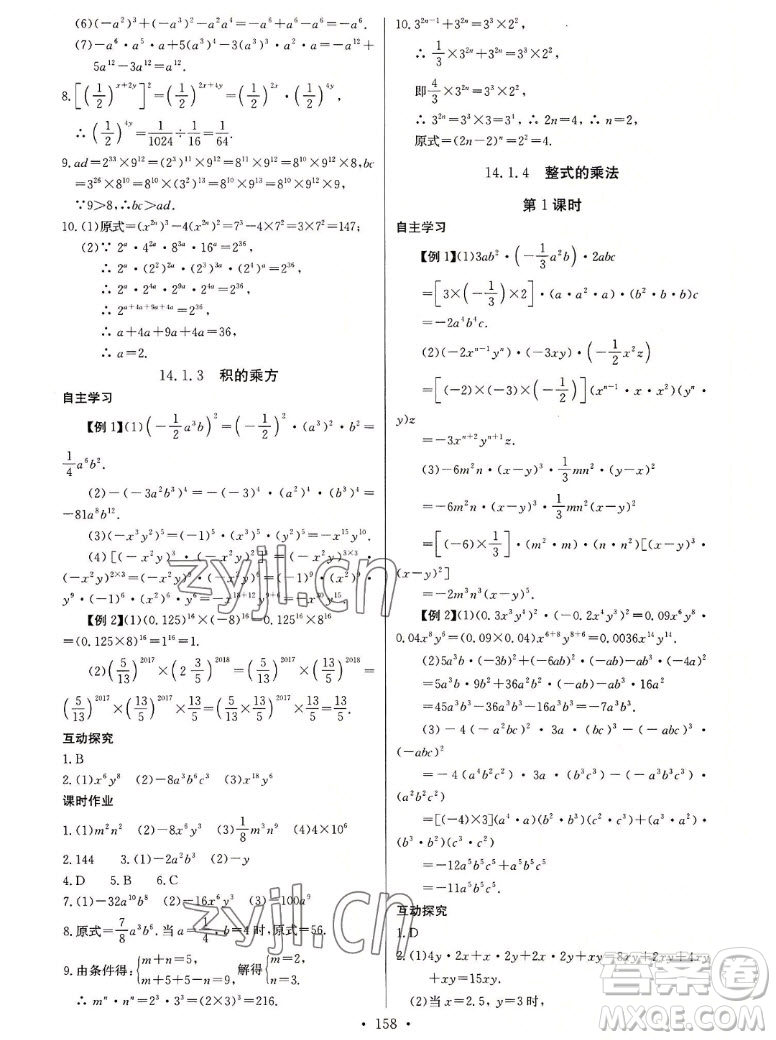 (6)(−a²)³−(a³)²=−a⁶−a⁶=−2a⁶
(7)−a⁵·a⁵·a+5(a³)⁴−3(a³)³·a²·a=−a¹²+
5a¹²−3a¹²=a¹².
8.[(1/2)^(x+2y)]²=(1/2)^(2x+4y)=(1/2)^(2x)·(1/2)^(4y),
∴(1/2)^(4y)=1/1024÷1/16=1/64.
9.ad=2³³×9¹²=(2³)¹¹×9¹²=8¹¹×9¹²=8¹⁰×9¹²×8,bc
=3²⁶×8¹⁰=(3²)¹³×8¹⁰=9¹³×8¹⁰=8¹⁰×9¹²×9,
∵9>8,∴bc>ad.
10.(1)原式=(x²ⁿ)³−4(x²ⁿ)²=7³−4×7²=3×7²=147;
(2)∵2ᵃ·4²ᵃ·8³ᵃ·16ᵃ=2³⁶,
∴2ᵃ·(2²)²ᵃ·(2³)³ᵃ·(2⁴)ᵃ=2³⁶,
∴2ᵃ·2⁴ᵃ·2⁹ᵃ·2⁴ᵃ=2³⁶,
∴2^(a+4a+9a+4a)=2³⁶,
∴a+4a+9a+4a=36,
∴a=2.
14.1.3 积的乘方
自主学习
【例1】(1)(−1/2 a³b)²=(−1/2)²·(a³)²·b²=
1/4 a⁶b².
(2)−(−3a²b³)⁴=−(−3)⁴·(a²)⁴·(b³)⁴=
−81a⁸b¹².
(3)(−x³y²)⁵=(−1)⁵·(x³)⁵·(y²)⁵=−x¹⁵y¹⁰.
(4)[(−x²y)³·(−x²y)²]³=(−x²y)^(3×3)·
(−x²y)^(2×3)=(−x²y)⁹·(−x²y)⁶=(−1)⁹·(x²)⁹·
y⁹·(−1)⁶·(x²)⁶·y⁶=−x^(18+12)y^(9+6)=−x³⁰y¹⁵.
【例2】(1)(0.125)¹⁶×(−8)¹⁶=0.125¹⁶×8¹⁶
=(0.125×8)¹⁶=1¹⁶=1.
(2)(5/13)²⁰¹⁷×(2 3/5)²⁰¹⁸=(5/13)²⁰¹⁷×(13/5)²⁰¹⁸
=(5/13)²⁰¹⁷×(13/5)²⁰¹⁷×(13/5)=(5/13×13/5)²⁰¹⁷×13/5=13/5.
互动探究
1.B
2.(1)x⁶y⁸ (2)−8a³b⁶c³ (3)x¹⁸y⁶
课时作业
1.(1)m²n² (2)−8x⁶y³ (3)1/8 m³n⁹ (4)4×10⁶
2.144 3.(1)−2a²b³ (2)−y
4.D 5.B 6.C
7.(1)−32a¹⁰b⁸ (2)−16x⁶y³ (3)100a⁹
8.原式=7/8 a³b⁶.当a=1/4,b=4时,原式=56.
9.由条件得:{m+n=5, m+5+5−n=9, 解得{m=2, n=3,
∴mⁿ·nⁿ=(m·n)ⁿ=(2×3)³=216.
10.3²ⁿ⁻¹+3²ⁿ=3³×2²,
∴1/3×3²ⁿ+3²ⁿ=3³×2²,
即4/3×3²ⁿ=3³×2²,
∴3²ⁿ=3³×3=3⁴,∴2n=4,
原式=(2n−2)ⁿ=2²=4.
14.1.4 整式的乘法
第1课时
自主学习
【例1】(1)3ab²·(−1/3 a²b)·2abc
=[3×(−1/3)×2]·(a·a²·a)·(b²·b·b)c
=−2a⁴b⁴c.
(2)(−2xⁿ⁻¹yⁿ)·(−3xy)·(−1/2 x²z)
=[(−2)×(−3)×(−1/2)](xⁿ⁻¹·x·x²)(yⁿ·
y)z
=−3xⁿ⁺²yⁿ⁺¹z.
(3)−6m²n·(x−y)³·1/3 mn²(y−x)²
=−6m²n·(x−y)³·1/3 mn²(x−y)²
=[(−6)×1/3]·(m²·m)(n·n²)[(x−y)³·
(x−y)²]
=−2m³n³(x−y)⁵.
【例2】(1)(0.3x³y⁴)²·(−0.2x⁴y³)²=0.09x⁶y⁸·
0.04x⁸y⁶=(0.09×0.04)x⁶⁺⁸y⁸⁺⁶=0.0036x¹⁴y¹⁴.
(2)5a³b·(−3b)²+(−6ab)²·(−ab)−ab³·(−4a)²
=5a³b·9b²+36a²b²·(−ab)−ab³·16a²
=45a³b³−36a³b³−16a³b³=−7a³b³.
(3)−4(−a²bc)²·3a·(bc)³−(−abc)³·
(−abc)²
=−4(a⁴b²c²)·3a·(b³c³)−(−a³b³c³)·
(a²b²c²)
=[(−4)×3](a⁴·a)(b²·b³)(c²·c³)+(a³·a²)·
(b³·b²)(c³·c²)
=−12a⁵b⁵c⁵+a⁵b⁵c⁵
=−11a⁵b⁵c⁵.
互动探究
1.D
2.(1)4y·2x+x·2y+2x·2y+xy=8xy+2xy+4xy
+xy=15xy.
(2)当x=2.5,y=3时,
· 158 ·
zyjl.cn
zyjl.cn
答案圈
MXQE.COM